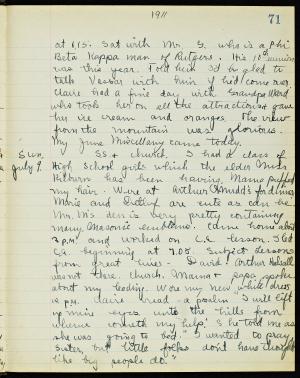 1911
71
at 6.15. Sat with Mr. S. who is a Phi
Beta Kappa man of Rutgers. His 10th reunion
was this year. Told him I'd be glad to
talk Vassar with him if he'd come over.
Claire had a fine day with Grandpa Ward
who took her on all the attractions & gave
her ice cream and oranges. The view
from the mountain was glorious.
My June Miscellany came today.
Sun. SS & church. I had a class of
July 9. High School girls which the elder Miss
has been having. Mama puffed
my hair. Were at Arthur Mudd's for dinner
Marie and are cute as can be
Mr. M's den is very pretty containing
many Masonic emblems. Came home about
3 P.M. and worked on C.E. lesson. I led
C.E. beginning at 7.05. Subject: Lessons
from great lives. David. Arthur
wasn't there. Church. Mama & papa spoke
about my leading. Wore my new white dress
in P.M. Claire read a psalm "I will lift
up mine eyes unto the hills from
whence cometh my help." She told me as
she was going to bed "I wanted to pray,
sister, but little folks don't have thoughts
like big people do."